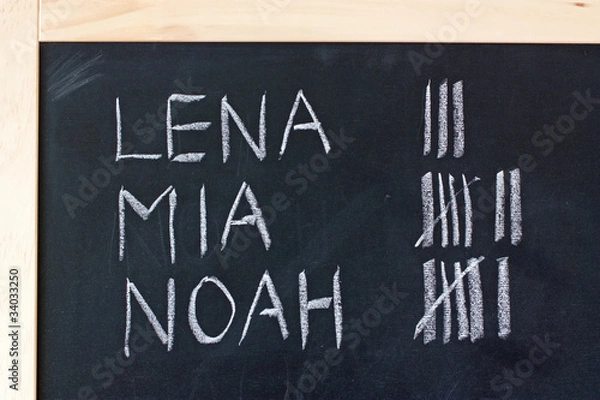 LENA |||
MIA 卌 ||
NOAH 卌 |
Adobe Stock | #34033250